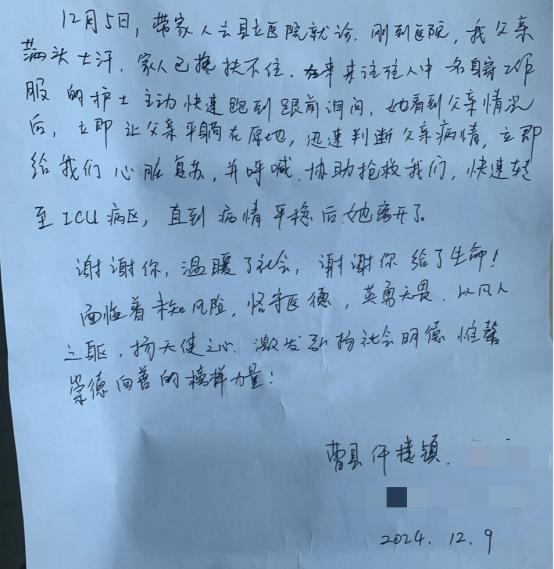 12月5日，带家人去县立医院就诊．刚到医院，我父亲
满头大汗．家人已搀扶不住．在来来往往人中一名身穿工作
服的护士主动快速跑到跟前询问，她看到父亲情况
后，立即让父亲平躺在原地，迅速判断父亲病情，立即
给我们心脏复苏，并呼喊．协助抢救我们，快速转
至ICU病区，直到病情平稳后她离开了。
谢谢你，温暖了社会，谢谢你给了生命！
面临着未知风险，恪守医德，英勇无畏．以凡人
之躯，扬天使之心．激发弘扬社会明德惟馨
崇德向善的榜样力量！
曹县仵楼镇．
2024.12.9